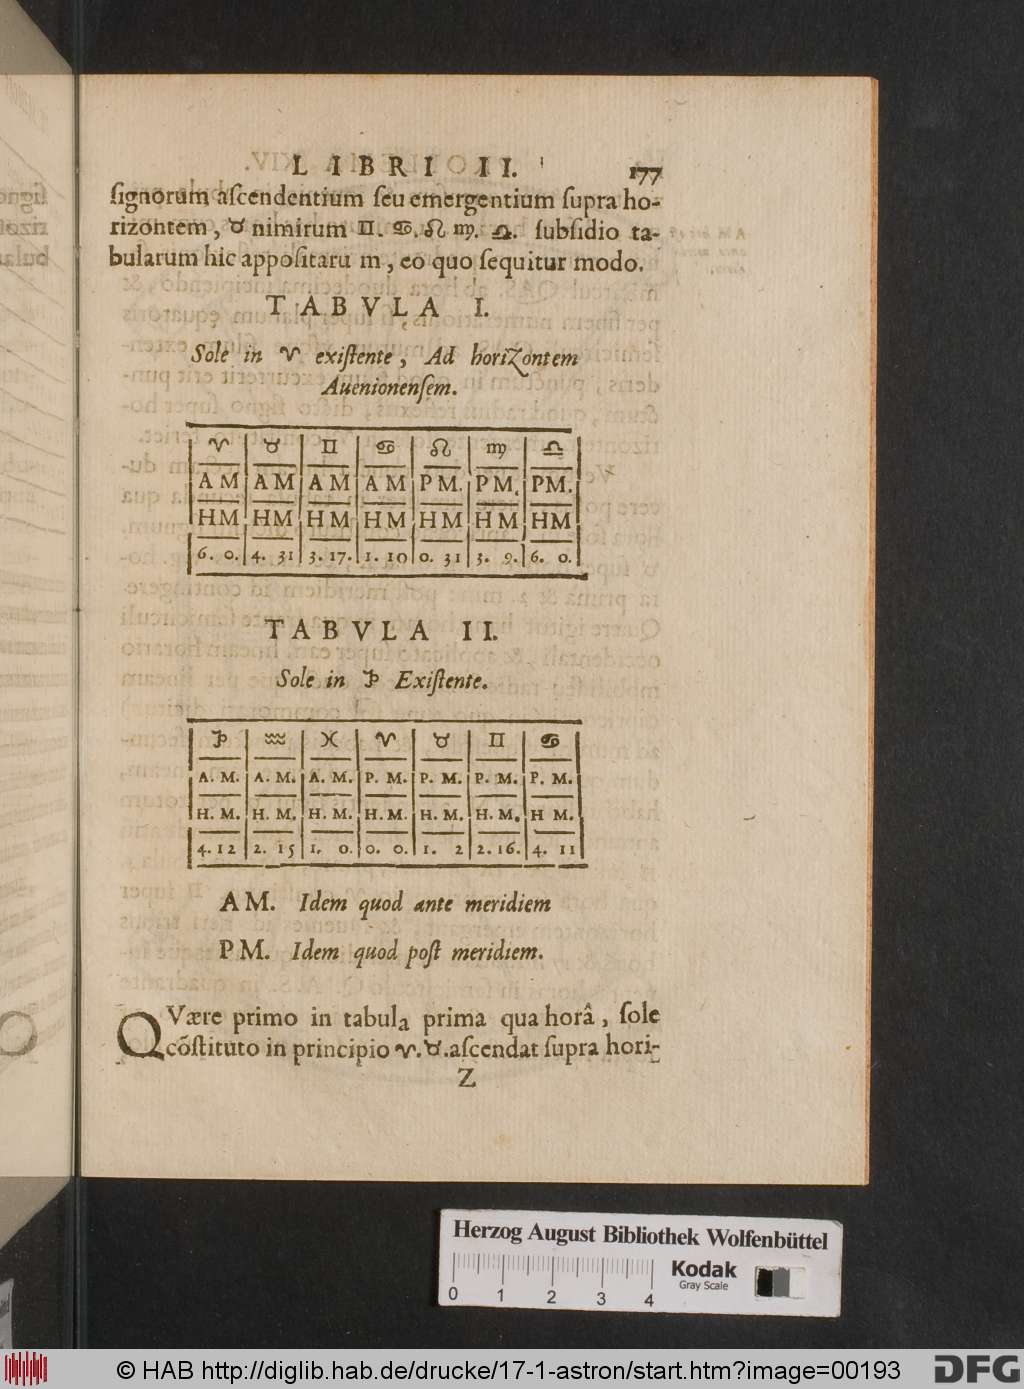 LIBRI II. 177
ſignorum aſcendentium ſeu emergentium ſupra ho-
rizontem, ♉ nimirum ♊. ♋. ♌ ♍. ♎. ſubſidio ta-
bularum hic appoſitaru m, eo quo ſequitur modo.
TABVLA I.
Sole in ♈ exiſtente, Ad horiZontem
Auenionenſem.
♈ ♉ ♊ ♋ ♌ ♍ ♎
A M A M A M A M P M. P M. PM.
HM HM H M H M H M H M HM
6. 0. 4. 31 3. 17. 1. 10 0. 31 3. 9. 6. 0.
TABVLA II.
Sole in ♑ Exiſtente.
♑ ♒ ♓ ♈ ♉ ♊ ♋
A. M. A. M. A. M. P. M. P. M. P. M. P. M.
H. M. H. M. H. M. H. M. H. M. H. M. H M.
4. 12 2. 15 1. 0. 0. 0. 1. 2 2. 16. 4. 11
A M. Idem quod ante meridiem
P M. Idem quod poſt meridiem.
QVære primo in tabula prima qua horâ, ſole
cõſtituto in principio ♈. ♉. aſcendat ſupra hori-
Z
Herzog August Bibliothek Wolfenbüttel
Kodak
Gray Scale
0 1 2 3 4
© HAB http://diglib.hab.de/drucke/17-1-astron/start.htm?image=00193
DFG